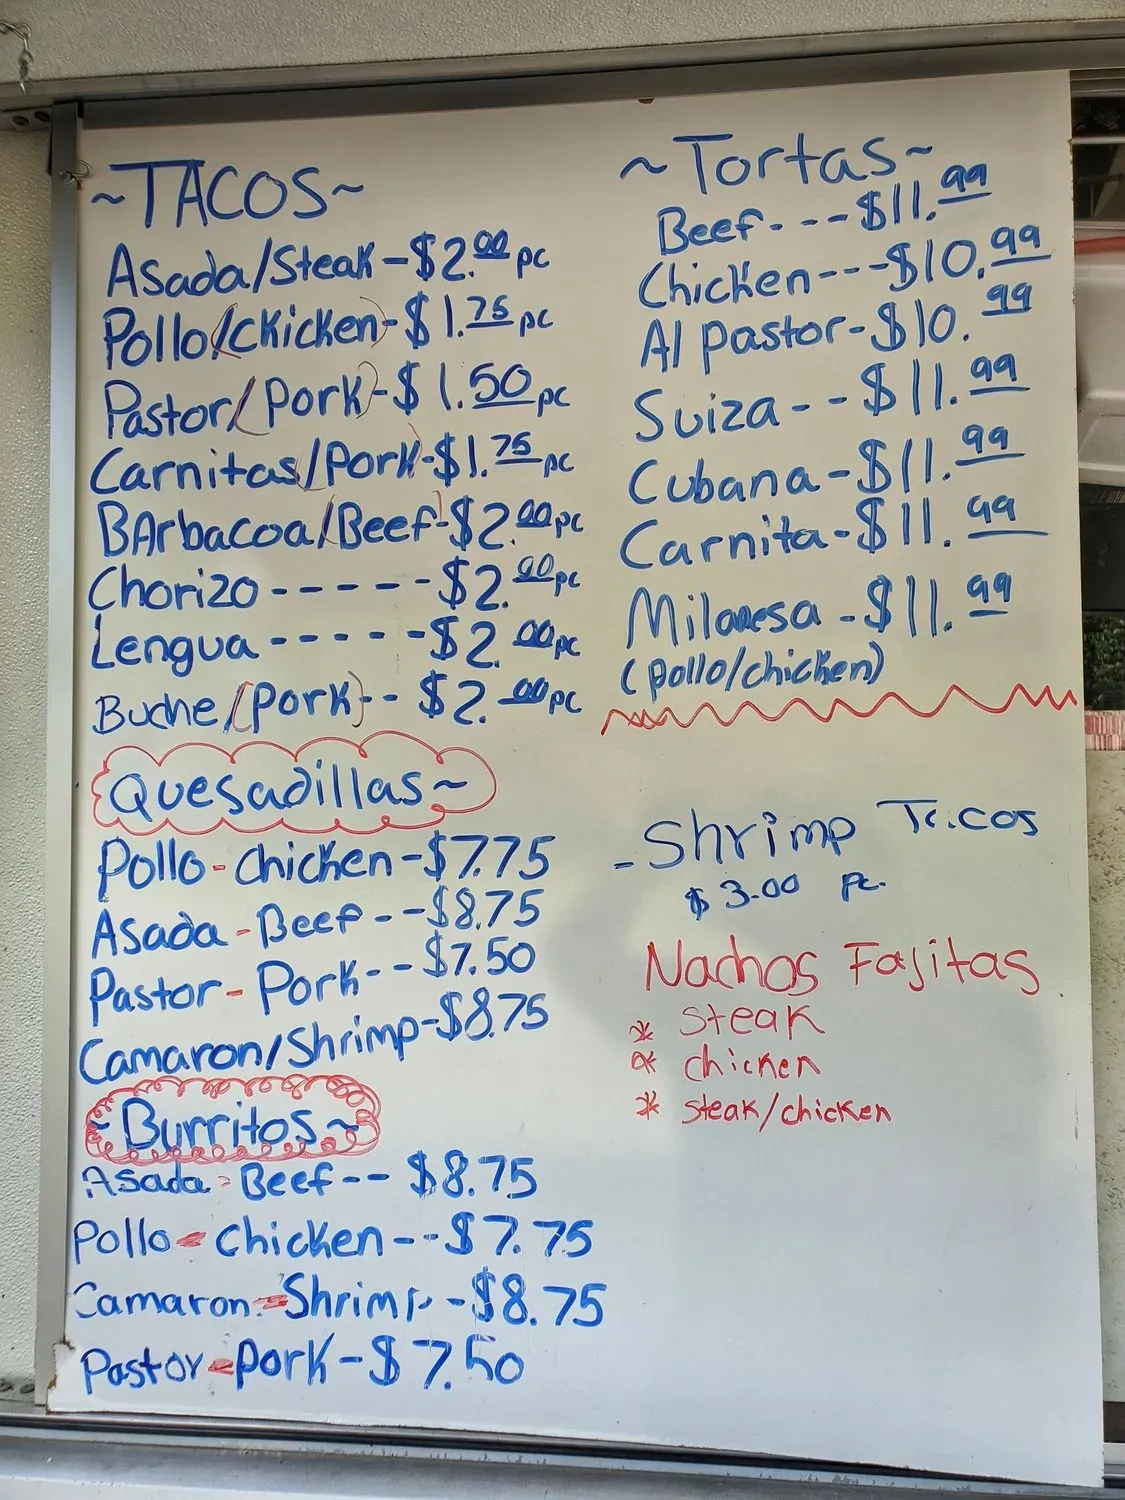 ~TACOS~
Asada/Steak-$2.00 pc
Pollo(/Chicken)-$1.75 pc
Pastor(/Pork)-$1.50 pc
Carnitas/Pork-$1.75 pc
BArbacoa/Beef-$2.00 pc
Chorizo-----$2.00 pc
Lengua-----$2.00 pc
Buche/(Pork)--$2.00 pc
Quesadillas~
Pollo-Chicken-$7.75
Asada-Beef--$8.75
Pastor-Pork--$7.50
Camaron/Shrimp-$8.75
~Burritos~
Asada-Beef--$8.75
Pollo-Chicken--$7.75
Camaron-Shrimp-$8.75
Pastor-Pork-$7.50
~Tortas~
Beef---$11.99
Chicken---$10.99
Al Pastor-$10.99
Suiza--$11.99
Cubana-$11.99
Carnita-$11.99
Milanesa-$11.99
(pollo/chicken)
-Shrimp Tacos
$3.00 pc.
Nachos Fajitas
* Steak
* chicken
* steak/chicken